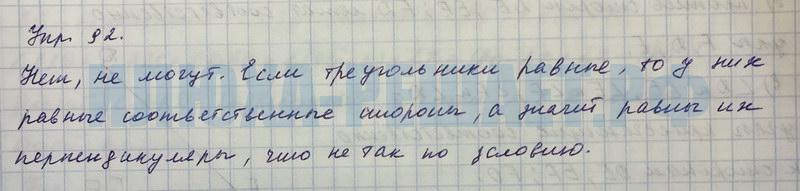 Упр 92.
Нет, не могут. Если треугольники равные, то у них
равные соответственные стороны, а значит равны их
перпендикуляры, что не так по условию.